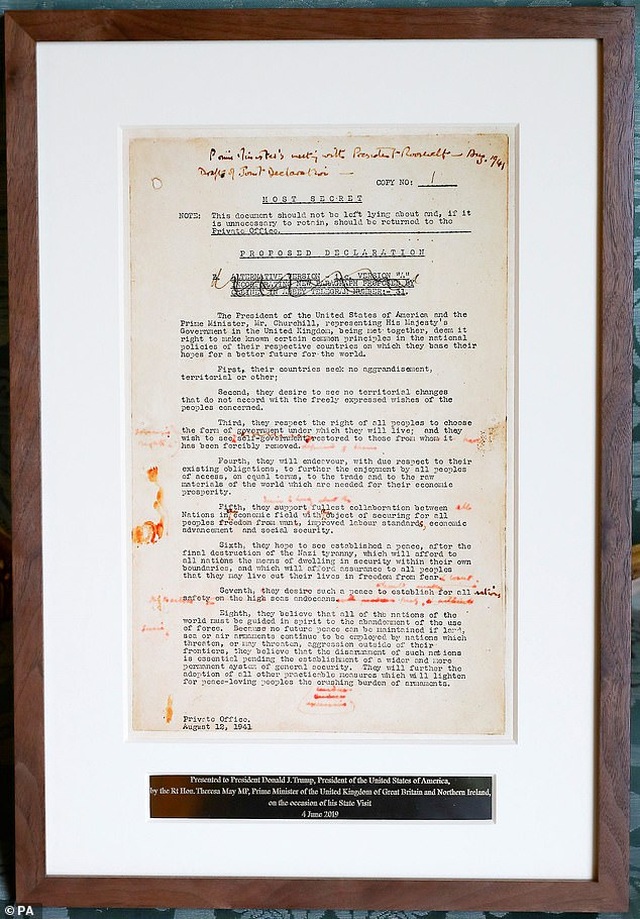 Prime Minister's meeting with President Roosevelt — Aug. 1941
Drafts of Joint Declaration —
COPY NO: 1
MOST SECRET
NOTE: This document should not be left lying about and, if it
is unnecessary to retain, should be returned to the
Private Office.
PROPOSED DECLARATION
ALTERNATIVE VERSION VERSION "A"
NEW PARAGRAPH PROPOSED BY
TELEGRAM NUMBER:- 31.
The President of the United States of America and the
Prime Minister, Mr. Churchill, representing His Majesty's
Government in the United Kingdom, being met together, deem it
right to make known certain common principles in the national
policies of their respective countries on which they base their
hopes for a better future for the world.
First, their countries seek no aggrandisement,
territorial or other;
Second, they desire to see no territorial changes
that do not accord with the freely expressed wishes of the
peoples concerned.
Third, they respect the right of all peoples to choose
the form of government under which they will live; and they
wish to see self-government restored to those from whom it
has been forcibly removed.
Fourth, they will endeavour, with due respect to their
existing obligations, to further the enjoyment by all peoples
of access, on equal terms, to the trade and to the raw
materials of the world which are needed for their economic
prosperity.
Fifth, they support fullest collaboration between
Nations in economic field with object of securing for all
peoples freedom from want, improved labour standards, economic
advancement and social security.
Sixth, they hope to see established a peace, after the
final destruction of the Nazi tyranny, which will afford to
all nations the means of dwelling in security within their own
boundaries, and which will afford assurance to all peoples
that they may live out their lives in freedom from fear.
Seventh, they desire such a peace to establish for all nations
safety on the high seas and oceans.
Eighth, they believe that all of the nations of the
world must be guided in spirit to the abandonment of the use
of force. Because no future peace can be maintained if land,
sea or air armaments continue to be employed by nations which
threaten, or may threaten, aggression outside of their
frontiers, they believe that the disarmament of such nations
is essential pending the establishment of a wider and more
permanent system of general security. They will further the
adoption of all other practicable measures which will lighten
for peace-loving peoples the crushing burden of armaments.
Private Office.
August 12, 1941
Presented to President Donald J. Trump, President of the United States of America,
by the Rt Hon. Theresa May MP, Prime Minister of the United Kingdom of Great Britain and Northern Ireland,
on the occasion of his State Visit
4 June 2019
© PA